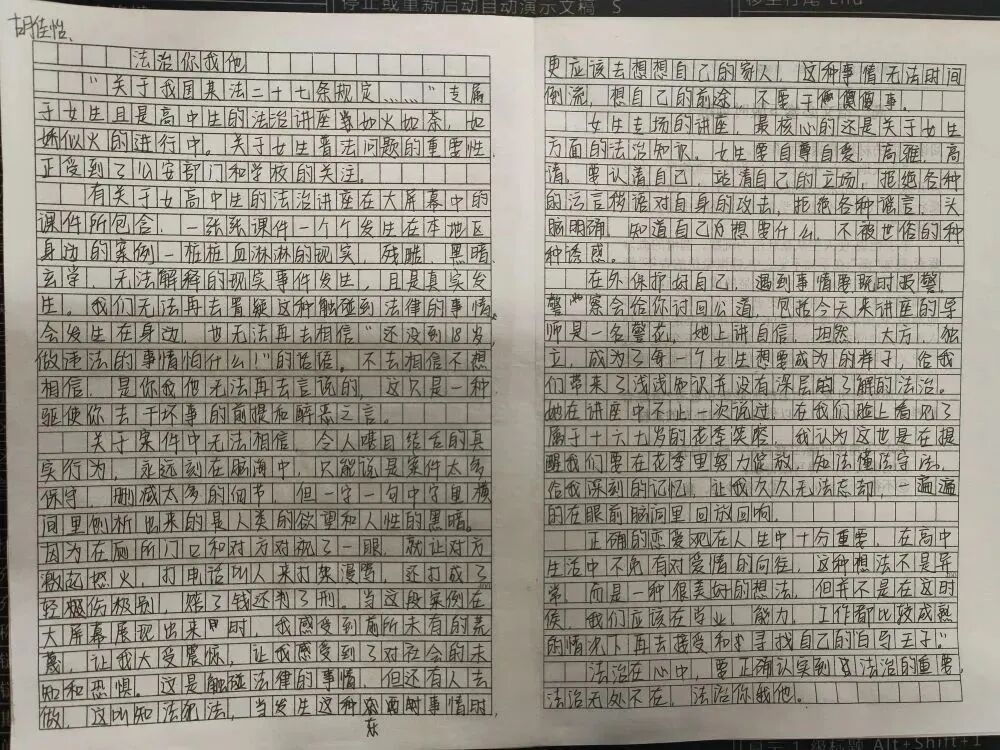 停止或重新启动自动演示文稿 S
胡佳性
法治你我他
“关于我国某法二十七条规定……”专属
于女生且是高中生的法治讲座当如火如荼,如
娇似火的进行中。关于女生普法问题的重要性,
正受到了公安部门和学校的关注。
有关于女高中生的法治讲座在大屏幕中的
课件所包含,一张张课件一个个发生在本地区
身边的案例一桩桩血淋淋的现实,残酷,黑暗
玄学,无法解释的现实事件发生,且是真实发
生。我们无法再去置疑这种触碰到法律的事情
会发生在身边,也无法再去相信“还没到18岁,
做违法的事情怕什么!”的话语。不去相信不想
相信,是你我他无法再去言说的,这只是一种
驱使你去干坏事的前提和解恶之言。
关于案件中无法相信,令人瞠目结舌的真
实行为,永远刻在脑海中,只能说是案件太多
保守,删减太多的细节,但一字一句中字里横
间里刨析出来的是人类的欲望和人性的黑暗。
因为在厕所门口和对方对视了一眼,就让对方
激起怒火,打电话叫人来打架漫骂,还打成了
轻极伤极别,赔了钱还判了刑。当这段案例在
大屏幕展现出来时,我感受到前所未有的荒
荡,让我大受震惊,让我感受到了对社会的未
知和恐惧。这是触碰法律的事情,但还有人去
做,这叫知法犯法,当发生这种事情时,
更应该去想想自己的家人,这种事情无法时间
倒流,想自己的前途,不要干傻事。
女生专场的讲座,最核心的还是关于女生
方面的法治知识。女生要自尊自爱,高雅,高
清。要认清自己,站清自己的立场,拒绝各种
的污言秽语对自身的攻击,拒绝各种谣言,头
脑明确,知道自己想要什么,不被世俗的种
种诱惑。
在外保护好自己,遇到事情要既时报警,
警察会给你讨回公道,包括今天来讲座的导
师是一名警花,她上讲自信,坦然,大方,独
立,成为了每一个女生想要成为的样子,给我
们带来了浅浅知识并没有深层的了解的法治。
她在讲座中不止一次说过,在我们脸上看见了
属于十六七岁的花季笑容,我认为这也是在提
醒我们要在花季里努力绽放,知法懂法守法,
给我深刻的记忆,让我久久无法忘却,一遍遍
的在眼前脑洞里回放回响。
正确的恋爱观在人生中十分重要,在高中
生活中不免有对爱情的向往,这种想法不是异
常,而是一种很美好的想法,但并不是在这时
侯,我们应该在学业,能力,工作都比较成熟
的情况下再去接受和寻找自己的白马王子。”
法治在心中,要正确认实到法治的重要,
法治无处不在,法治你我他。